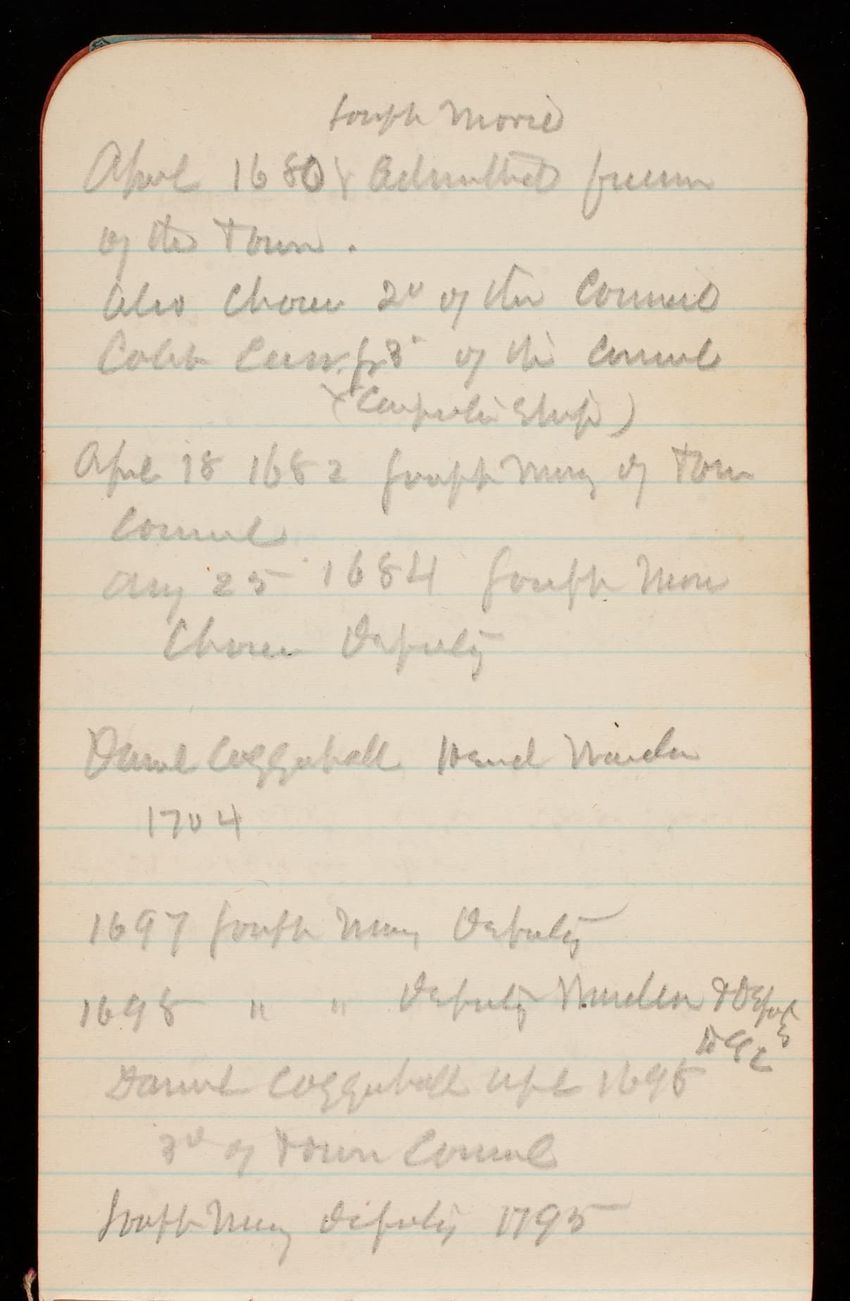 Joseph Morie
April 1680 Admitted freem
of the Town.
Also Chosen 2d of the Council
Caleb Carr Jr 3d of the Council
(Carpenter Shop)
April 18 1682 Joseph Mory of Town
Council
Aug 25 1684 Joseph More
Chosen Deputy
Daniel Coggeshall Head Warden
1704
1697 Joseph Mory Deputy
1698 " " Deputy Warden & Deputy
Daniel Coggeshall Apl 1695
3d of Town Council
Joseph Mory deputy 1795